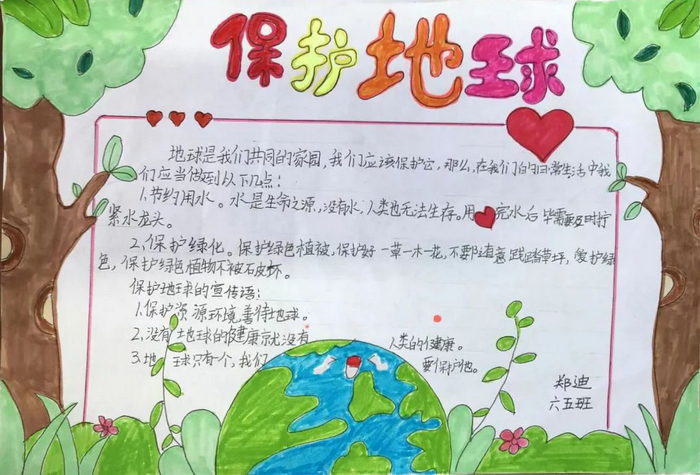 保护地球
地球是我们共同的家园，我们应该保护它，那么，在我们的日常生活中我
们应当做到以下几点：
1.节约用水。水是生命之源，没有水，人类也无法生存。用完水后 需要及时拧
紧水龙头。
2，保护绿化。保护绿色植被，保护好一草一木一花，不要随意践踏草坪，爱护绿
色，保护绿色植物不被破坏。
保护地球的宣传语：
1.保护资源环境善待地球。
2，没有地球的健康就没有 人类的健康。
3.地球只有个，我们 要保护他。
郑迪
六五班